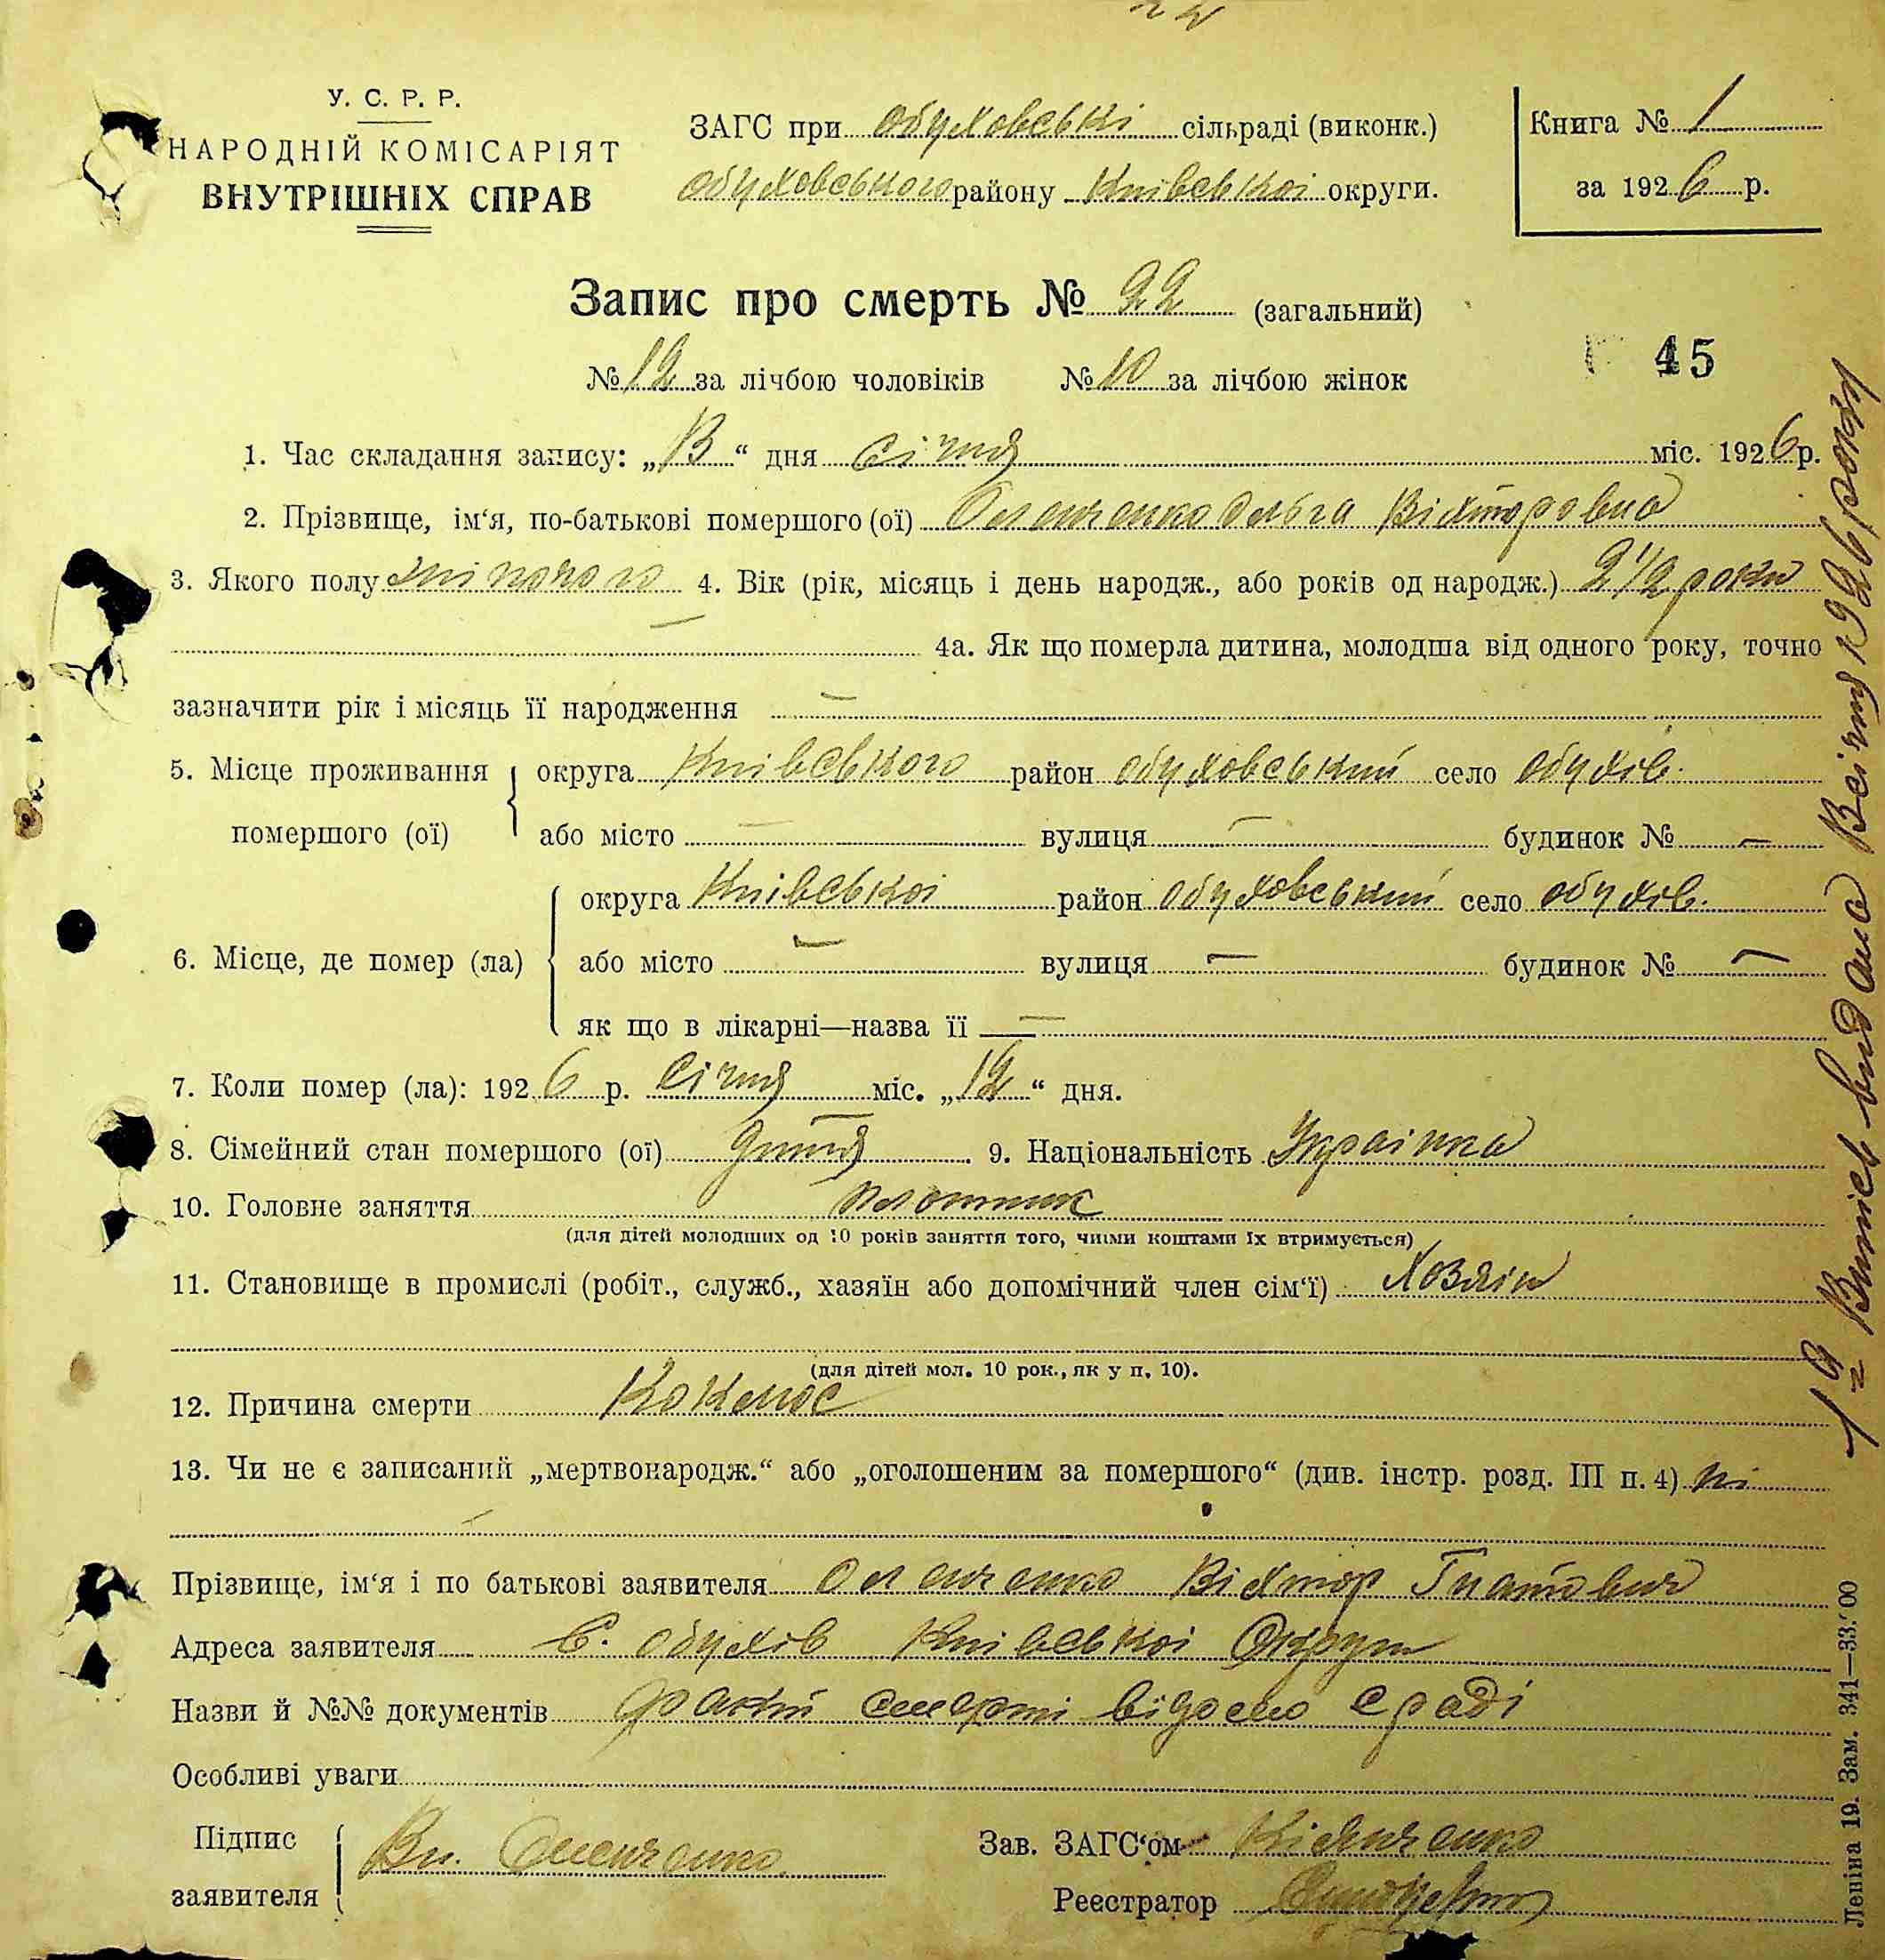 22
У. С. Р. Р.
НАРОДНІЙ КОМІСАРІЯТ
ВНУТРІШНІХ СПРАВ
ЗАГС при обуховські сільраді (виконк.)
обуховського району Київської округи.
Книга № 1
за 1926 р.
Запис про смерть № 22 (загальний)
№ 12 за лічбою чоловіків № 10 за лічбою жінок
45
1. Час складання запису: „13“ дня січня міс. 1926 р.
2. Прізвище, ім‘я, по-батькові помершого (ої) Ольга Віхторовна
3. Якого полу жіночого 4. Вік (рік, місяць і день народж., або років од народж.) 2 1/2 роки
4а. Як що померла дитина, молодша від одного року, точно
зазначити рік і місяць її народження —
5. Місце проживання помершого (ої) округа Київського район обуховський село обухів.
або місто — вулиця — будинок № —
6. Місце, де помер (ла) округа Київської район обуховський село обухів.
або місто — вулиця — будинок № —
як що в лікарні—назва її —
7. Коли помер (ла): 1926 р. січня міс. „12“ дня.
8. Сімейний стан помершого (ої) дитя. 9. Національність Українка
10. Головне заняття плотник
(для дітей молодших од 10 років заняття того, чиїми коштами їх втримується)
11. Становище в промислі (робіт., служб., хазяїн або допомічний член сім‘ї) Хозяін
(для дітей мол. 10 рок., як у п. 10).
12. Причина смерти Коклюс
13. Чи не є записаний „мертвонародж.“ або „оголошеним за помершого“ (див. інстр. розд. III п. 4) ні
Прізвище, ім‘я і по батькові заявителя Віхтор Гнатович
Адреса заявителя С. обухів Київської Округи
Назви й №№ документів факт смерті відомо с раді
Особливі уваги
Підпис заявителя Вк.
Зав. ЗАГС‘ом
Реєстратор
Випісь видана 13 січня 1926 року
Леніна 19. Зам. 341—33.‘00